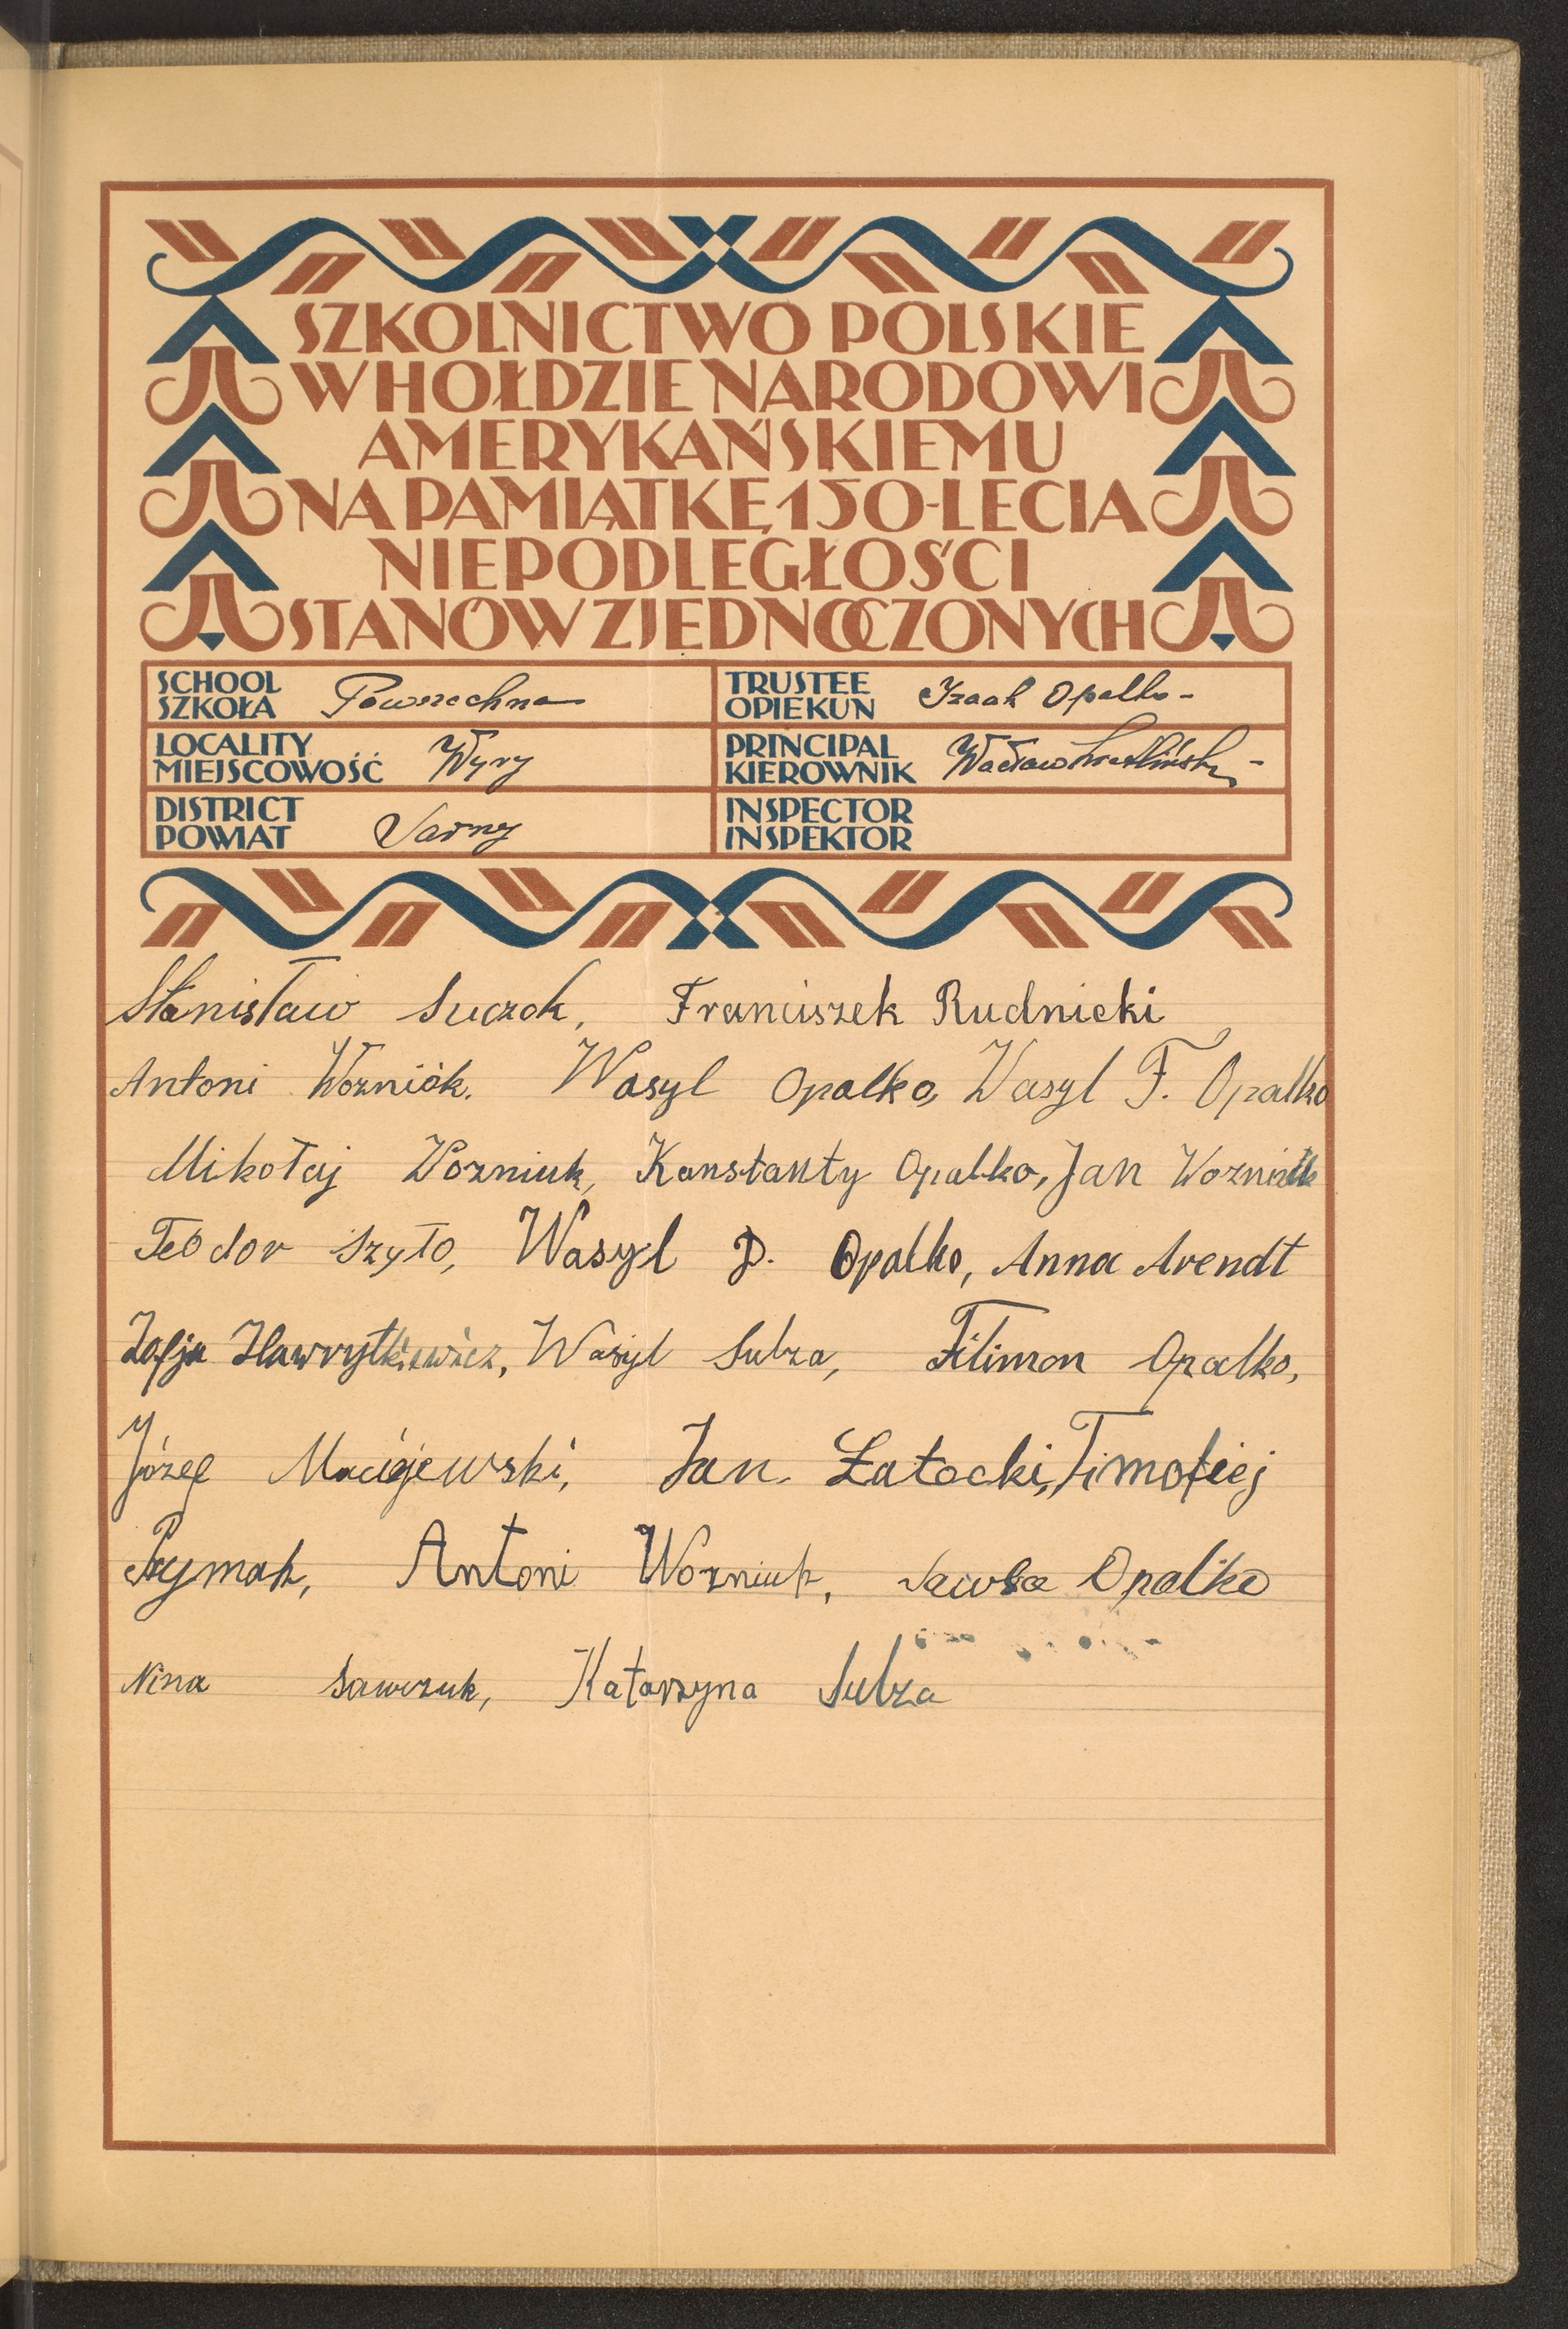 SZKOLNICTWO POLSKIE
W HOŁDZIE NARODOWI
AMERYKAŃSKIEMU
NA PAMIĄTKĘ 150-LECIA
NIEPODLEGŁOŚCI
STANÓW ZJEDNOCZONYCH
SCHOOL
SZKOŁA Powszechna
TRUSTEE
OPIEKUN Izaak Opalko -
LOCALITY
MIEJSCOWOŚĆ Wyry
PRINCIPAL
KIEROWNIK Wacław
DISTRICT
POWIAT Sarny
INSPECTOR
INSPEKTOR
Stanisław Suczok, Franciszek Rudnicki
Antoni Wozniók. Wasyl Opalko, Wasyl F. Opalko
Mikołaj Wozniuk, Konstanty Opalko, Jan Wozniuk
Teodor Szyło, Wasyl D. Opalko, Anna Arendt
Zofja Hawrytkiewicz, Wasyl Sulza, Filimon Opalko,
Józef Maciejewski, Jan Łatocki, Timofiej
Prymak, Antoni Wozniuk, Sawa Opalko
Nina Sawczuk, Katarzyna Sulza